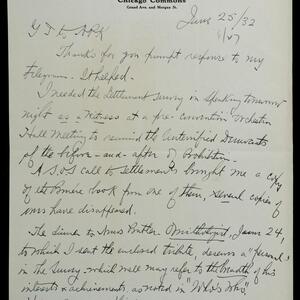 Chicago Commons
Grand Ave. and Morgan St.
June 25/32
G T to A P K
Thanks for you prompt response to my
telegram. It helped.
I needed the Settlement survey in speaking tomorrow
night as a witness at a pre-convention Orchestra
Hall meeting to remind the unterrified Democrats
of the before-and-after of Prohibition.
A S.O.S call to settlements brought me a copy
of its book from one of them, several copies of
ours have disappeared.
The dinner to Amos Butler Ornithologist, June 24,
to which I sent the enclosed tribute, deserves a "personal"
in the Survey, which will may refer to the breadth of his
interests & achievements, as noted in "Who's Who,"